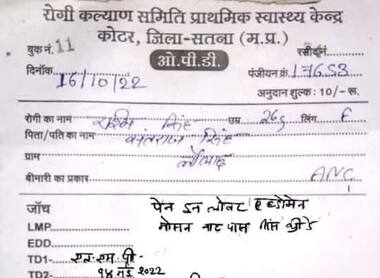 रोगी कल्याण समिति प्राथमिक स्वास्थ्य केन्द्र
कोटर, जिला-सतना (म.प्र.)
बुक नं. 11 रसीद नं.
ओ.पी.डी.
दिनाँक 16/10/22 पंजीयन क्र. 17653
अनुदान शुल्क: 10/- रू.
रोगी का नाम रश्मि सिंह उम्र 26 लिंग F
पिता/पति का नाम सिंह
ग्राम
बीमारी का प्रकार ANC
जॉंच पेन इन लोवर एब्डोमेन
LMP. मोसन नाट पास
EDD.
TD1- एल.एम.पी-
TD2- १४ मई 2022